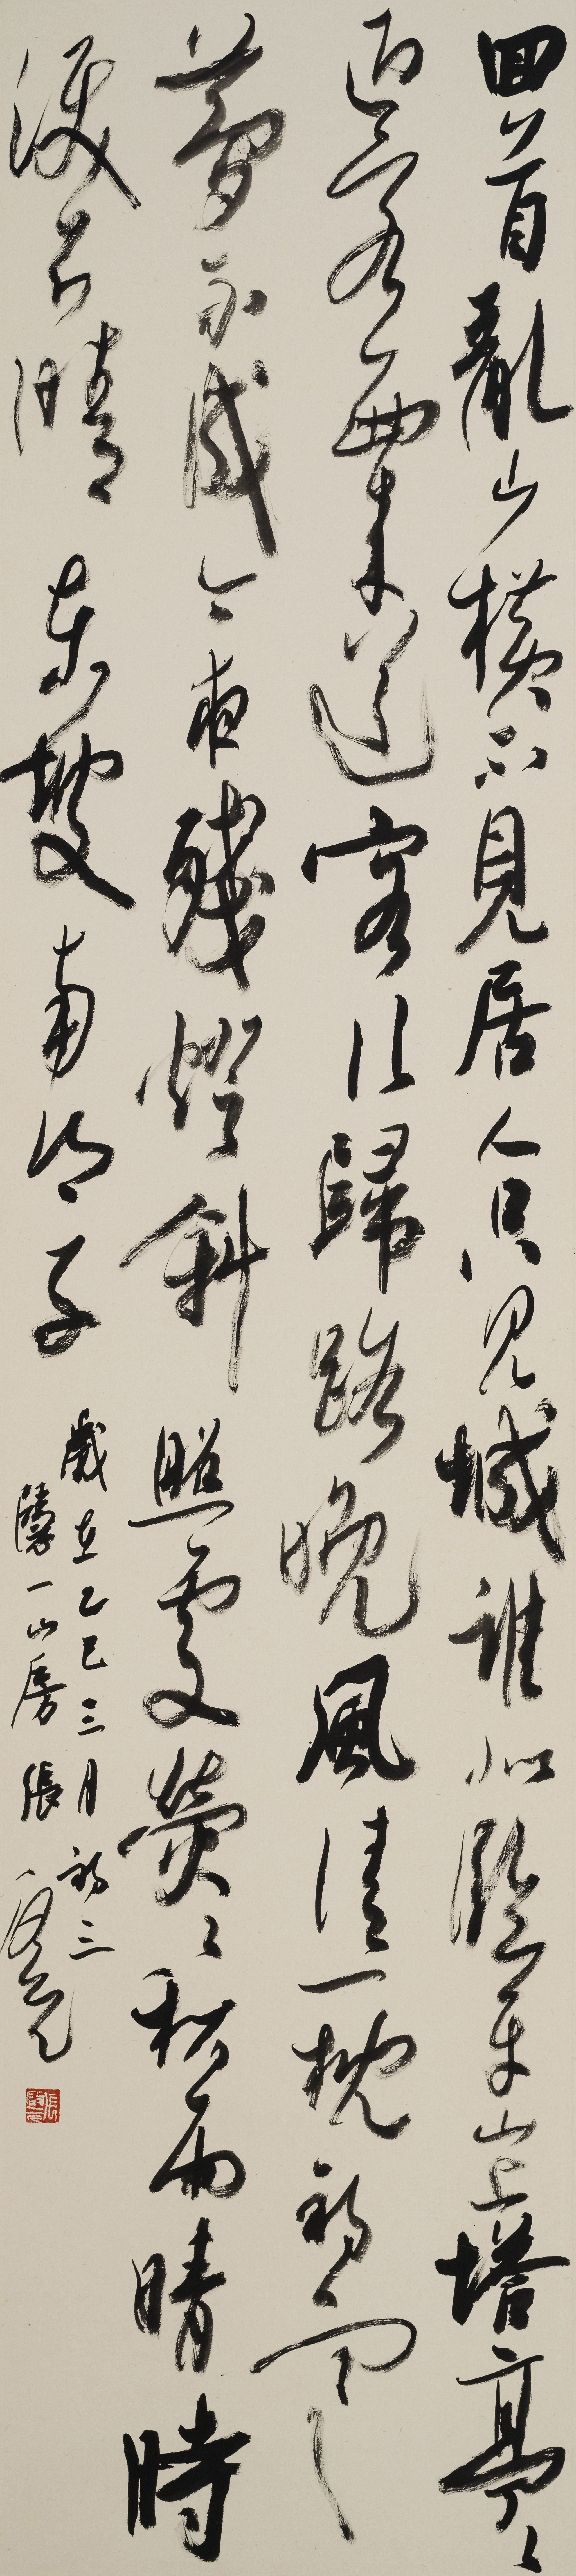 回首亂山橫不見居人只見城誰似臨平山上塔亭〻
迎客西來送客行歸路晚風清一枕初寒
夢不成今夜殘燈斜照處熒〻秋雨晴時
淚不晴 東坡南鄉子
歲在乙巳三月初三
一山房 張